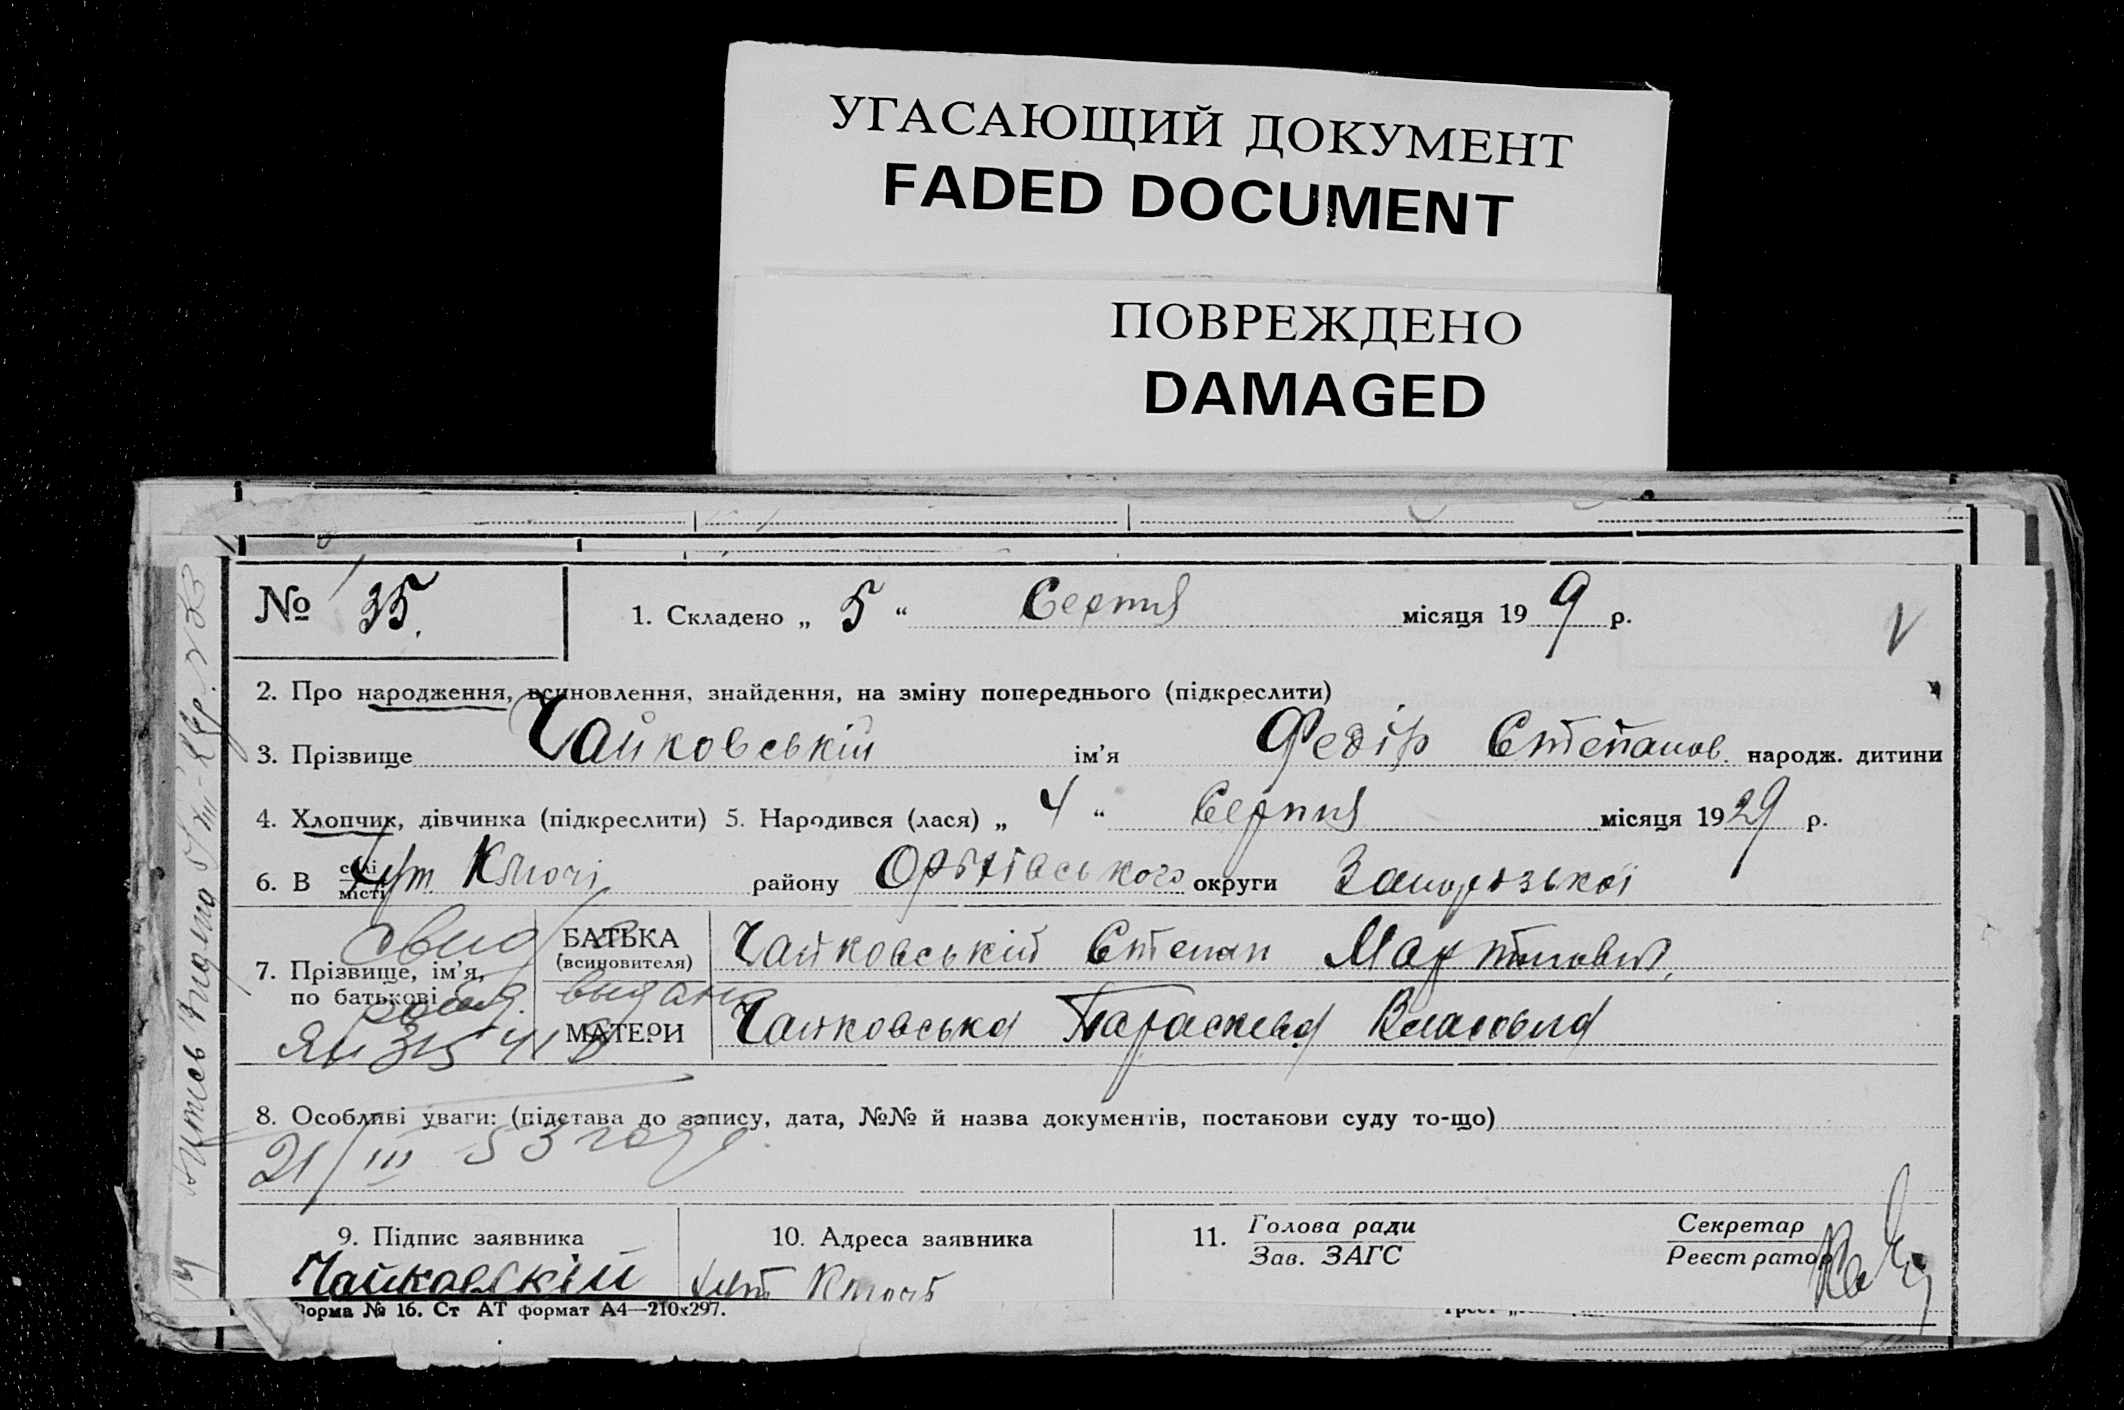 УГАСАЮЩИЙ ДОКУМЕНТ
FADED DOCUMENT
ПОВРЕЖДЕНО
DAMAGED
№ 35.
1. Складено „ 5 “ Серпня місяця 19 9 р.
V
2. Про народження, всиновлення, знайдення, на зміну попереднього (підкреслити)
3. Прізвище Чайковський ім’я Федір Степанов. народж. дитини
4. Хлопчик, дівчинка (підкреслити) 5. Народився (лася) „ 4 “ Серпня місяця 1929 р.
6. В селі місті Хут Ключі району округи Запорізької
7. Прізвище, ім’я, по батькові
БАТЬКА (всиновителя) Чайковській Степан Мартинович.
МАТЕРИ Чайковська Параскева Власовна
выдана
8. Особливі уваги: (підстава до запису, дата, №№ й назва документів, постанови суду то-що)
21/III 53 года.
9. Підпис заявника
Чайковскій
10. Адреса заявника
хут Ключі
11. Голова ради
Зав. ЗАГС
Секретар
Реєстратор
Форма № 16. Ст АТ формат А4—210х297.